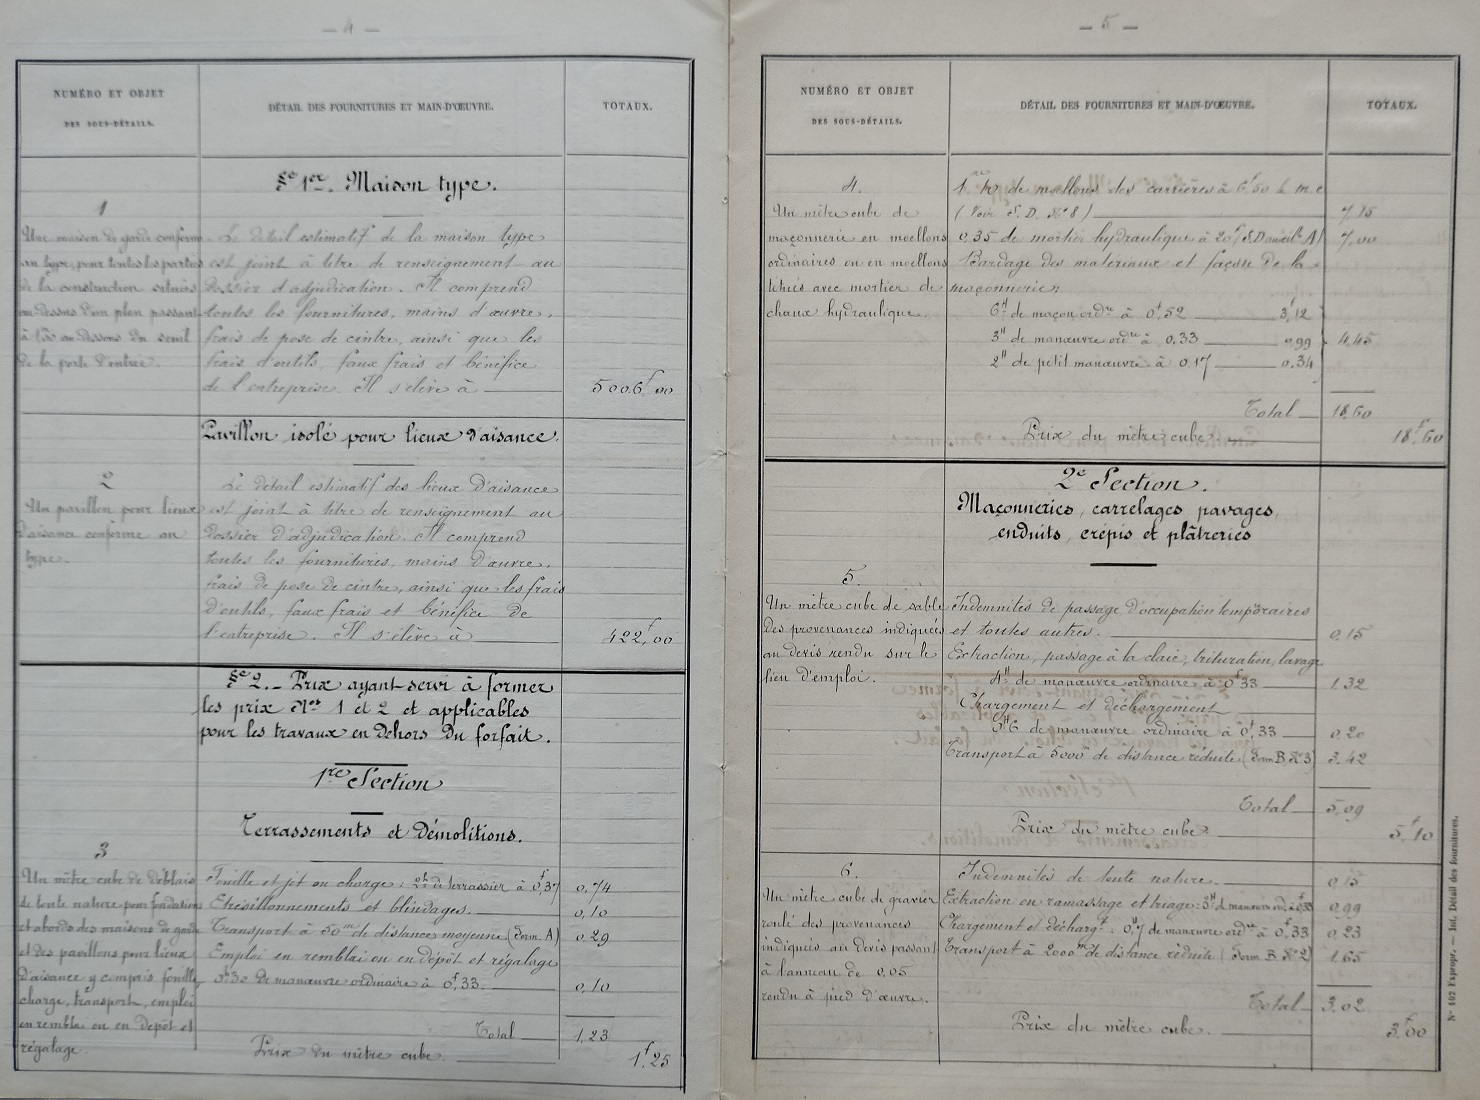 — 4 —
NUMÉRO ET OBJET
DES SOUS-DÉTAILS.
DÉTAIL DES FOURNITURES ET MAIN-D'ŒUVRE.
TOTAUX.
§e 1er. Maison type.
1
Une maison de garde conforme
au type, pour toutes les parties
de la construction situées
au dessus d'un plan passant
à 1,55 au dessous du seuil
de la porte d'entrée.
Le détail estimatif de la maison type
est joint à titre de renseignement au
dossier d'adjudication. Il comprend
toutes les fournitures, mains d'œuvre,
frais de pose de cintre, ainsi que les
frais d'outils, faux frais et bénéfice
de l'entreprise. Il s'élève à 5006f,00
Pavillon isolé pour lieux d'aisance.
2
Un pavillon pour lieux
d'aisance conforme au
type.
Le détail estimatif des lieux d'aisance
est joint à titre de renseignement au
dossier d'adjudication. Il comprend
toutes les fournitures, mains d'œuvre,
frais de pose de cintre, ainsi que les frais
d'outils, faux frais et bénéfice de
l'entreprise. Il s'élève à 422f,00
§e 2. — Prix ayant servi à former
les prix Nos 1 et 2 et applicables
pour les travaux en dehors du forfait.
1re Section
Terrassements et démolitions.
3
Un mètre cube de déblais
de toute nature pour fondations
et abords des maisons de garde
et des pavillons pour lieux
d'aisance y compris fouille,
charge, transport, emploi
en remblai ou en dépôt et
régalage.
Fouille et jet ou charge : 2h de terrassier à 0f,37 0,74
Etrésillonnements et blindages. 0,10
Transport à 50m de distance moyenne (Form. A) 0,29
Emploi en remblai ou en dépôt et régalage
0h30 de manœuvre ordinaire à 0f,33. 0,10
Total 1,23
Prix du mètre cube. 1f,25
— 5 —
NUMÉRO ET OBJET
DES SOUS-DÉTAILS.
DÉTAIL DES FOURNITURES ET MAIN-D'ŒUVRE.
TOTAUX.
4.
Un mètre cube de
maçonnerie en moellons
ordinaires ou en moellons
têtués avec mortier de
chaux hydraulique.
de moellons des carrières à 6f60 le m.c
(Voir S.D. No 8) 7,15
0,35 de mortier hydraulique à 20f 7,00
Bardage des matériaux et façon de la
maçonnerie:
6h de maçon ordre à 0f,52 3f,12
3h de manœuvre ordre à 0,33 0,99 4,45
2h de petit manœuvre à 0,17 0,34
Total 18,60
Prix du mètre cube. 18f,60
2e Section.
Maçonneries, carrelages, pavages,
enduits, crépis et plâtreries
5.
Un mètre cube de sable
des provenances indiquées
au devis rendu sur le
lieu d'emploi.
Indemnités de passage d'occupation temporaires
et toutes autres. 0,15
Extraction, passage à la claie, trituration, lavage
4h de manœuvre ordinaire à 0f33 1,32
Chargement et déchargement
0h6 de manœuvre ordinaire à 0f,33 0,20
Transport à 5000m de distance réduite (Form B, No 3) 3,42
Total 5,09
Prix du mètre cube 5f,10
6.
Un mètre cube de gravier
roulé des provenances
indiquées au devis passant
à l'anneau de 0,05
rendu à pied d'œuvre.
Indemnités de toute nature. 0,15
Extraction en ramassage et triage : 3h de manœuvre ord. à 0f,33 0,99
Chargement et décharg.t : 0h7 de manœuvre ordre à 0f,33 0,23
Transport à 2000m de distance réduite (Form. B. No 2) 1,65
Total 3,02
Prix du mètre cube. 3f,00
No 402 Expropr. — Int. Détail des fournitures.